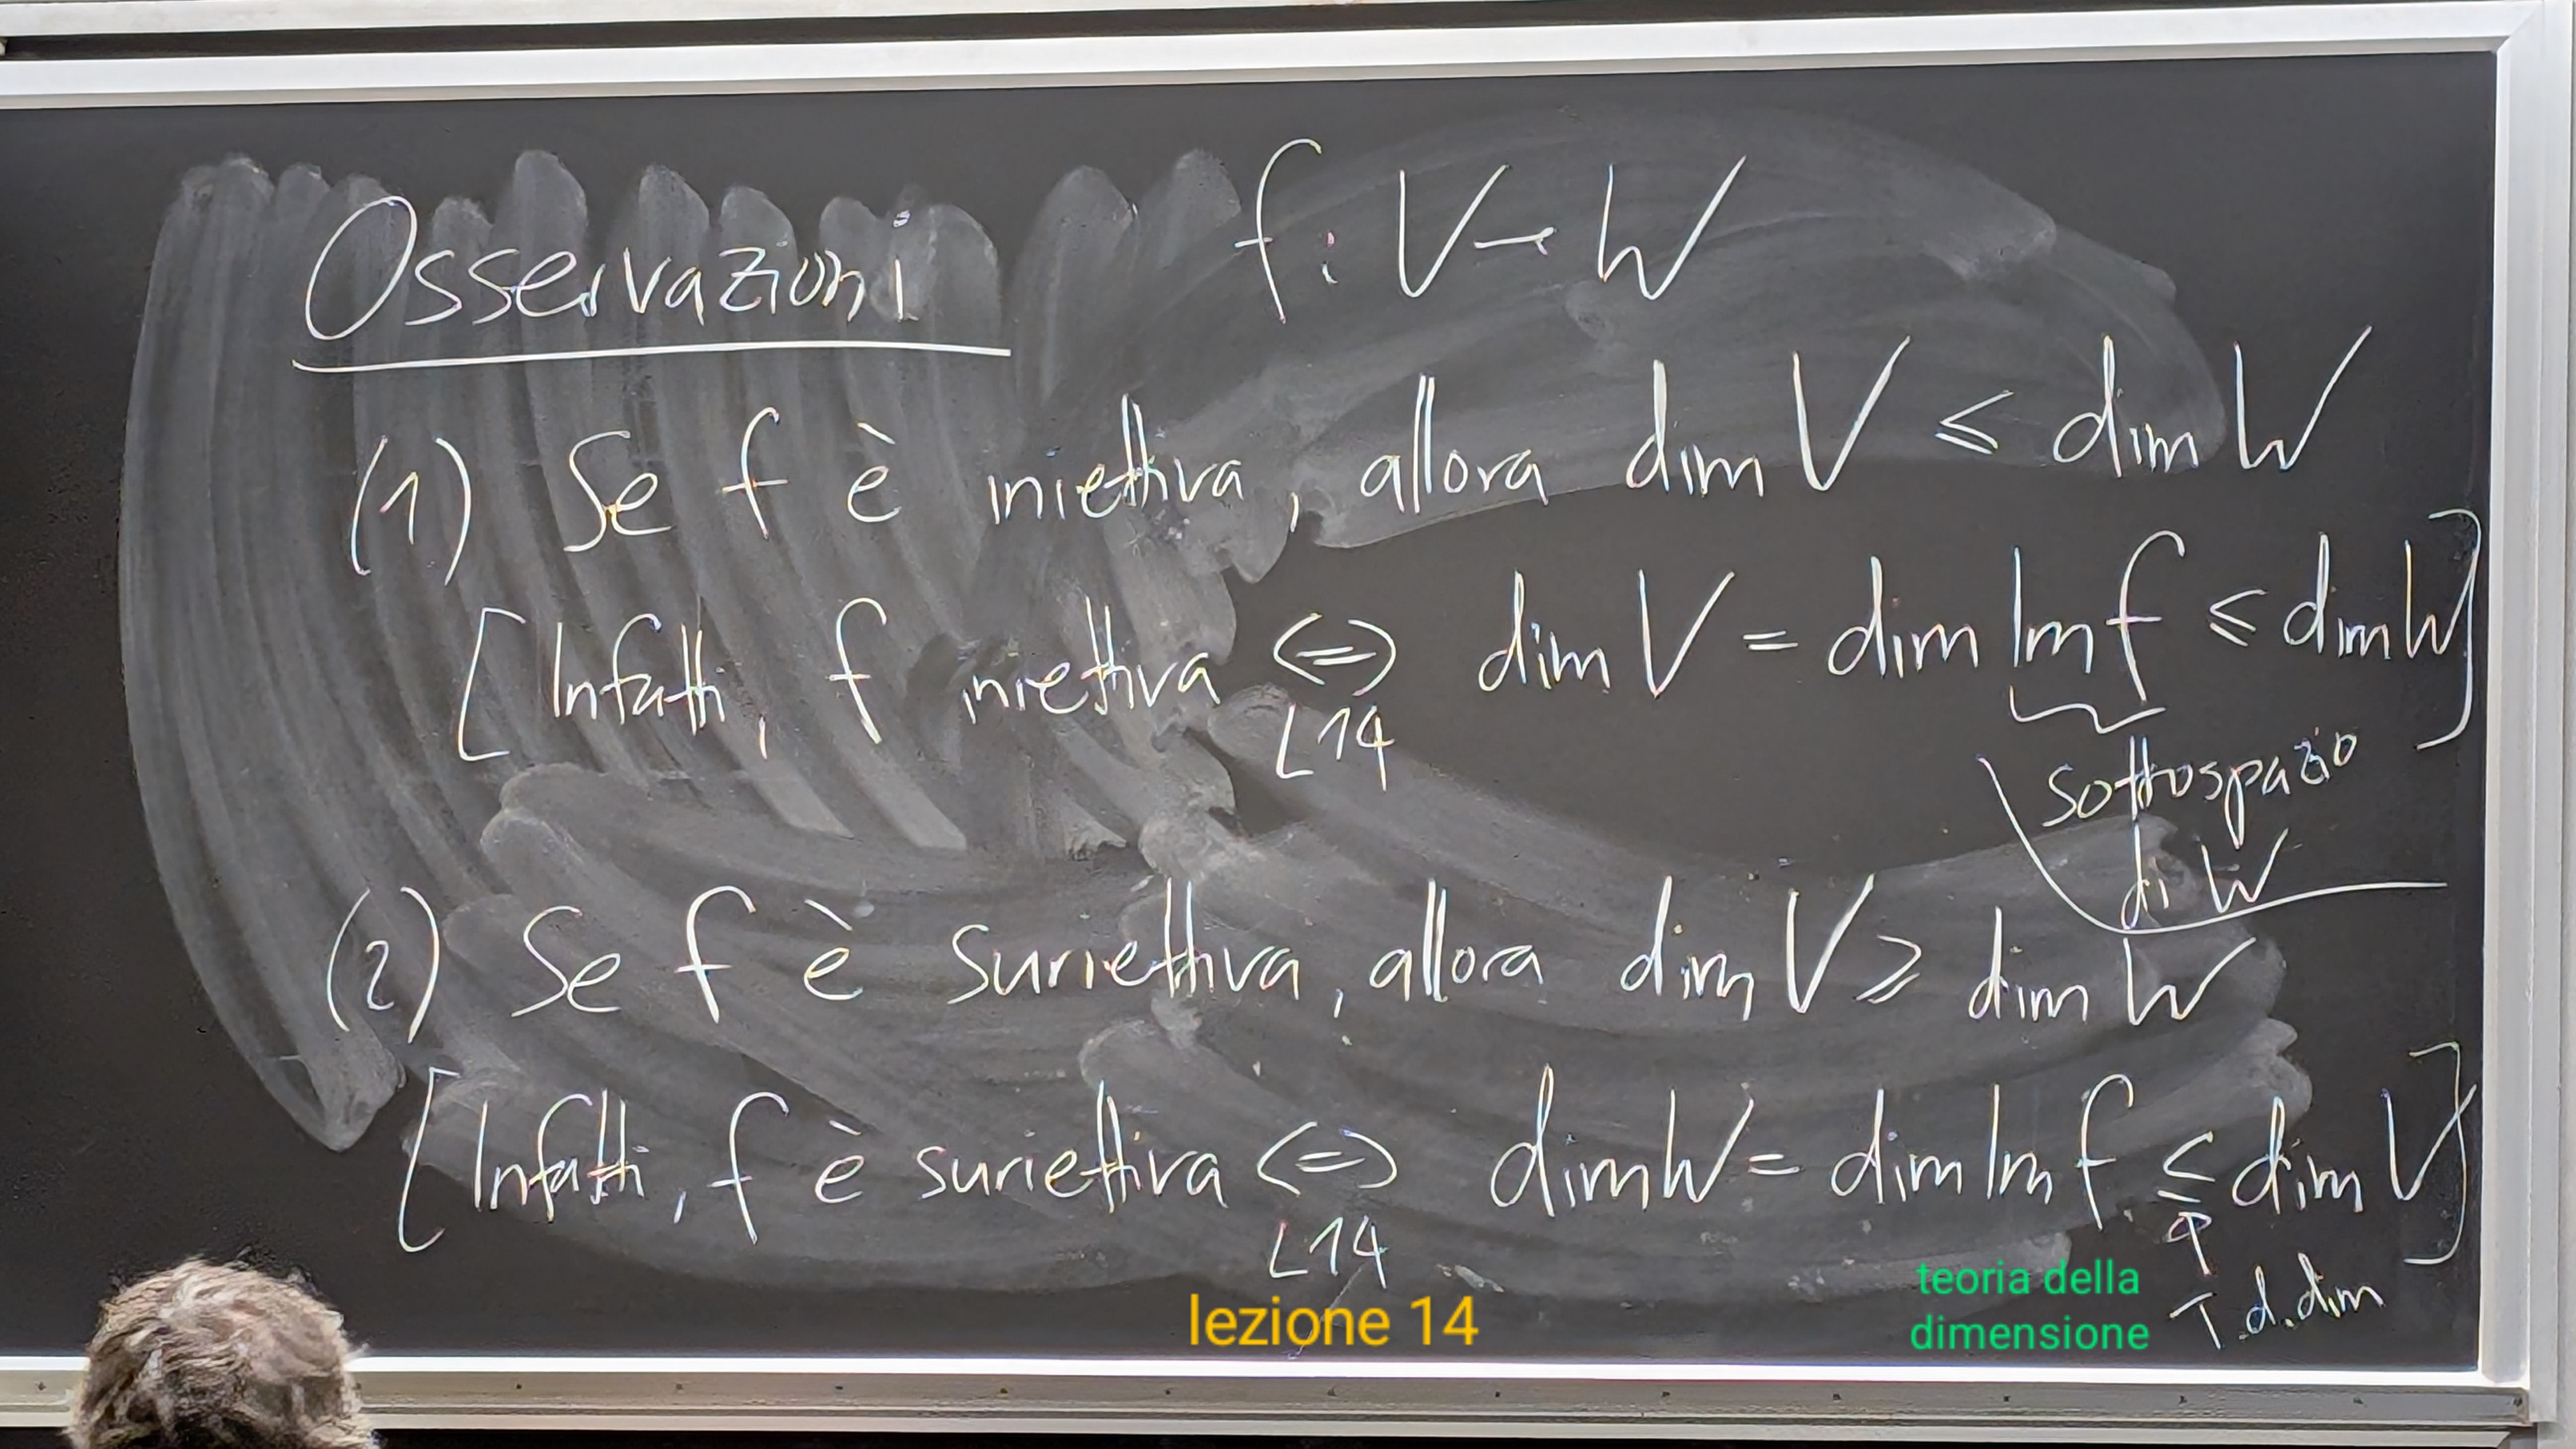 Osservazioni f: V → W
(1) Se f è iniettiva, allora dim V ≤ dim W
[Infatti, f iniettiva <=> dim V = dim Im f ≤ dim W]
L14
sottospazio
di W
(2) Se f è suriettiva, allora dim V ≥ dim W
[Infatti, f è suriettiva <=> dim W = dim Im f ≤ dim V]
L14
↑
T.d.dim
teoria della
dimensione
lezione 14